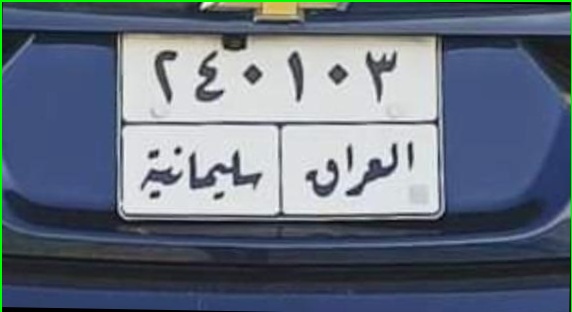 ٢٤٠١٠٣
العراق سليمانية